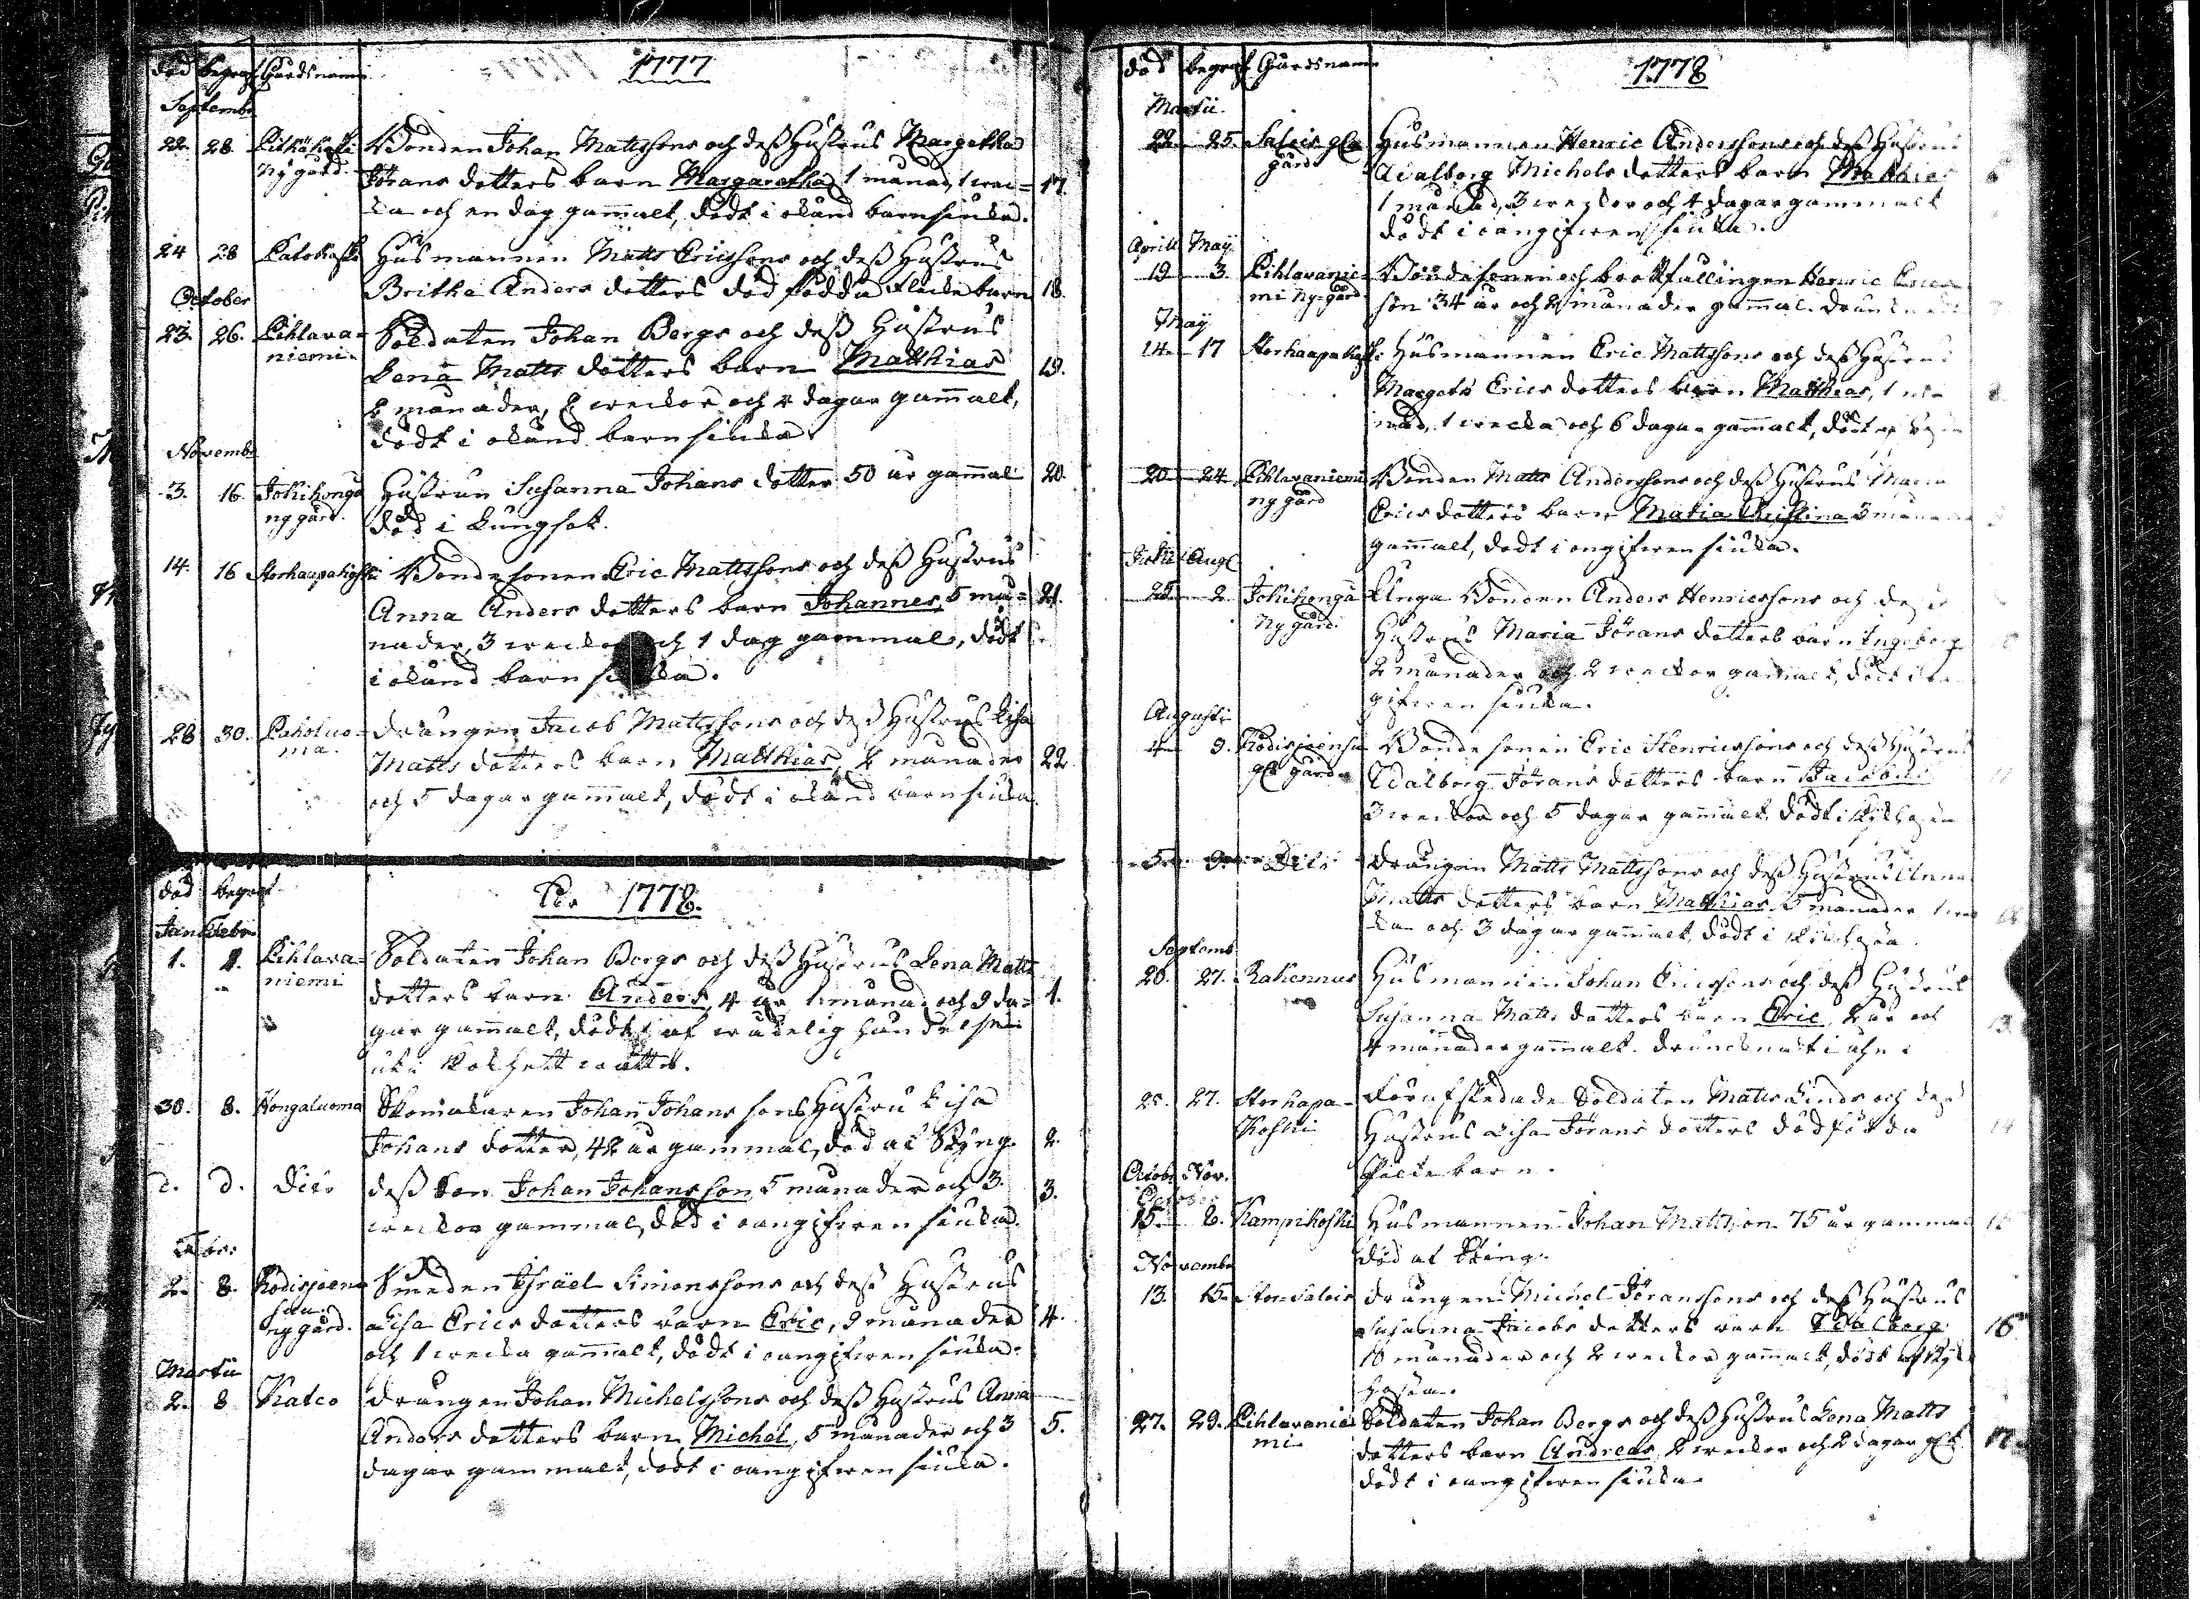 död begraf Gårdsnamn 1777
Septembr
22. 28. Pitkäkoski Bonden Johan Mattssons och dess Hustrus Margetha
Ny gård. Jörans dotters barn Margaretha 1 månad, 1 wec= 17.
ka och en dag gam̄alt, dödt i okänd barnsiuka.
24 28 Katokoski Husmannen Matts Ericssons och dess Hustrus
Britha Anders dotters död födda flicke barn 18.
October
23. 26. Pihlava= Soldaten Johan Bergs och dess Hustrus
niemi. Lena Matts dotters barn Matthias 19.
2 månader, 2 weckor och 4 dagar gam̄alt,
dödt i okänd barnsiuka.
Novembr
3. 16 Jokihonga Hustrun Susanna Johans dotter 50 år gam̄al 20.
ny gård. död i Lungsot.
14. 16 Storhaapakoski Bondesonen Eric Mattssons och dess Hustrus
Anna Anders dotters barn Johannes, 5 må= 21.
nader, 3 weckor och 1 dag gammal, dödt
i okänd barn siuka.
28 30. Paholuo= Drängen Jacob Mattssons och dess Hustrus Lisa
ma. Matts dotters barn Matthias, 2 månader 22
och 5 dagar gam̄alt, dödt i okänd barnsiuka.
död begraf
1778.
Janu Febr
1. 1. Pihlava= Soldaten Johan Bergs och dess Hustrus Lena Matts
niemi dotters barn Anders, 4 år 1 månad och 9 da= 1.
gar gam̄alt, dödt af wådelig händelse
uti
30. 8. Hongaluoma Skomakaren Johan Johans sons Hustru Lisa
Johans dotter, 42 år gammal, död af Styng. 2.
d. d. Dito dess Son Johan Johansson, 5 månader och 3 3.
weckor gammal, död i oangifwen siukd.
Febr:
2. 8. Kodisjoen= Smeden Israël Simonssons och dess Hustrus
suu ny gård. Lisa Erics dotters barn Eric, 9 månader 4.
och 1 wecka gam̄alt, dödt i oangifwen siukd.
Martii
2. 8 Katco Drängen Johan Michelssons och dess Hustrus Anna
Anders dotters barn Michel, 5 månader och 3 5.
dagar gammalt, dödt i oangifwen siuka.
död begraf Gårdsnamn 1778
Martii.
22 25. Salois gla Husmannen Henric Anderssons och dess Hustrus
gård Walborg Michels dotters barn Matthias
1 månad, 3 weckor och 4 dagar gammalt
dödt i oangifwen siuka.
Aprill May
19 3. Pihlavanie= Bondesonen och brottfällingen Henric Erics
mi ny gård son 34 år och 2 månader gam̄al.
May
14. 17 Storhaapakoski Husmannen Eric Mattssons och dess Hustrus
Margets Erics dotters barn Matthias, 1 må
nad, 1 wecka och 6 dagar gam̄alt, dödt
20 24 Pihlavaniemi Bonden Matts Anderssons och dess Hustrus Maria
ny gård Erics dotters barn Maria Christina 3 månader
gam̄alt, dödt i oangifwen siuka.
Julii Aug
25. 2. Jokihonga Unga Bonden Anders Henricssons och dess
ny gård. Hustrus Maria Jörans dotters barn Ingeborg
2 månader och 2 weckor gamalt, dödt i oan
gifwen siuka.
Augusti
4 9. Kodisjoensu Bonde sonen Eric Henricssons och dess Hustrus
gla gård Walborg Jörans dotters barn Jacobus
3 weckor och 5 dagar gam̄alt, dödt i Kikhosta
5. 9. Dito Drängen Matts Mattssons och dess Hustrus Anna
Matts dotters barn Matthias 5 månader 1 wec
ka och 3 dagar gam̄alt, dödt i Kikhosta.
Septemb
26. 27. Rahennus Husmannen Johan Ericssons och dess Hustrus
Susanna Matts dotters barn Eric, 2 år och
4 månader gam̄alt. 13
25. 27. Storhapa= Förafskedade Soldaten Matts Linds och dess
koski Hustrus Lisa Jörans dotters dödfödda 14
flicke barn.
Octob Nov.
October
15. 2. Kampikoski Husmannen Johan Mattsson 75 år gammal 15
död af Sting.
Novembr
13. 15. Stor Salois Drängen Michel Jöranssons och dess Hustrus
Susanna Jacobs dotters barn Walborg 16
10 månader och 2 weckor gam̄alt, dödt af Kik
hosta.
27. 29. Pihlavanie= Soldaten Johan Bergs och dess Hustrus Lena Matts
mi dotters barn Andreas, 2 weckor och 2 dagar glt 17.
dödt i oangifwen siuka